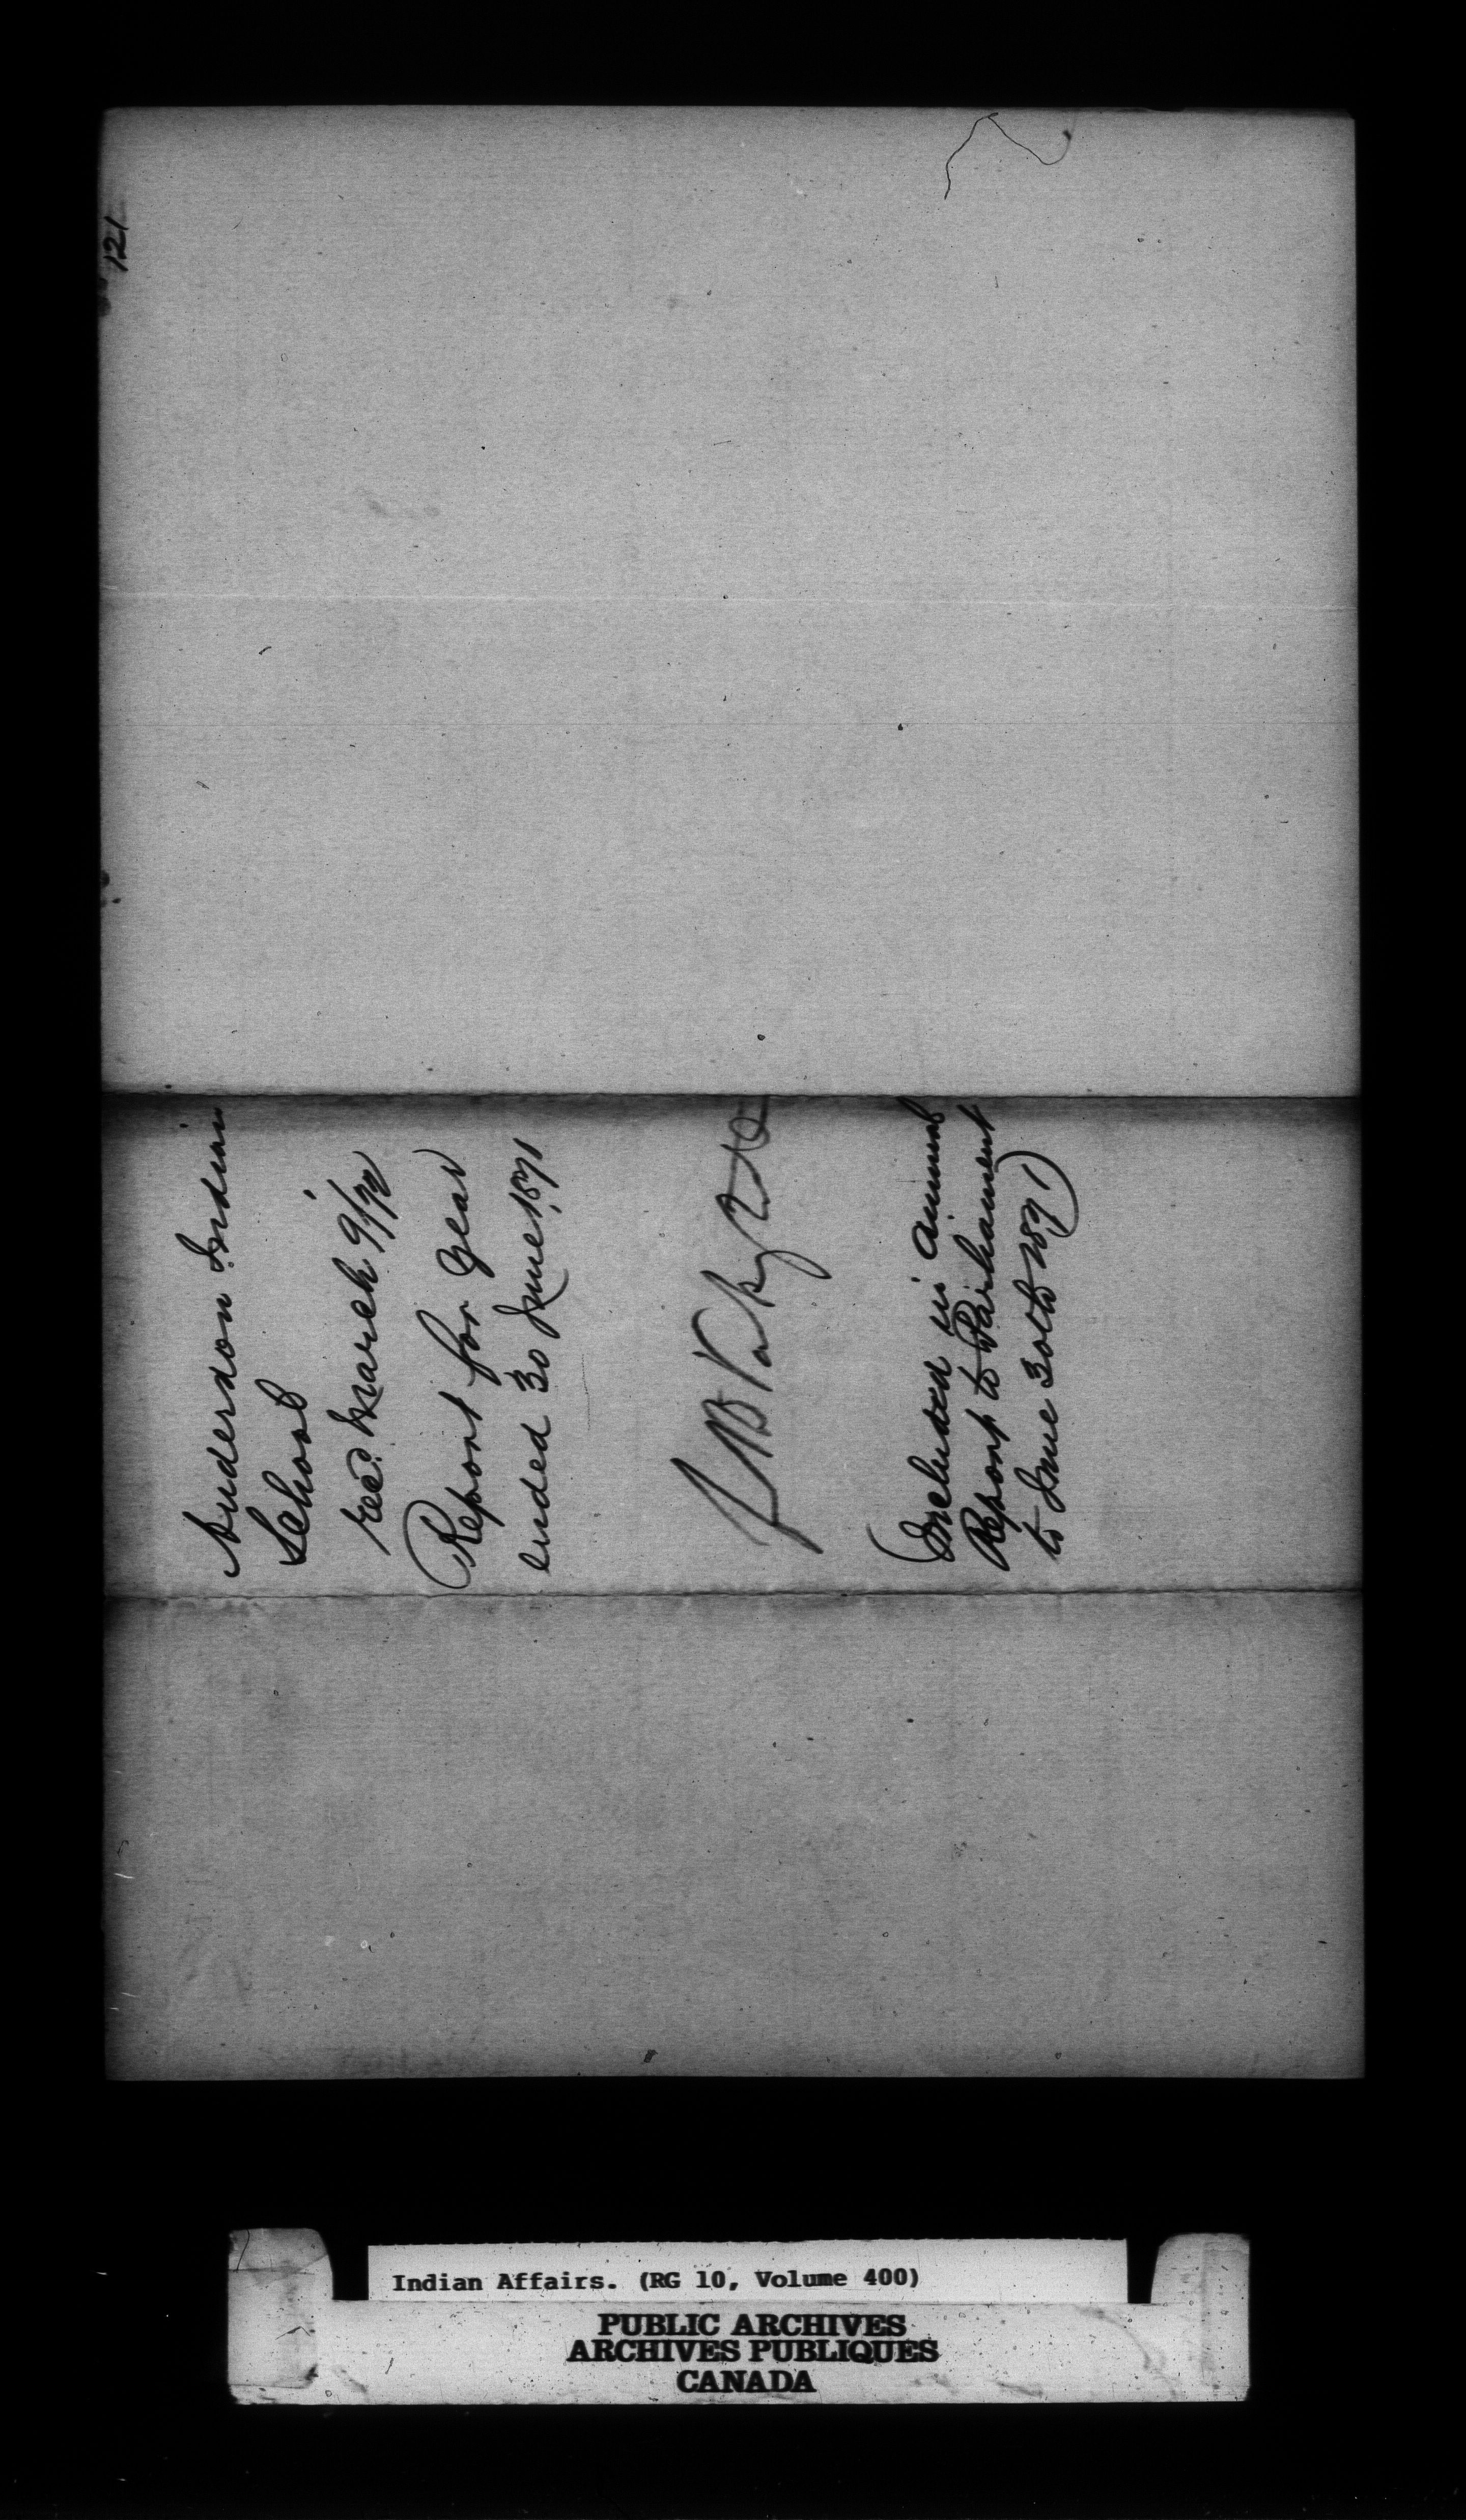 121
Anderdon Indian
School
recd. March 9/72
(Report for Year
ended 30 June 1871)
(Included in Annual
Report to Parliament
to June 30th 1871)
Indian Affairs. (RG 10, Volume 400)
PUBLIC ARCHIVES
ARCHIVES PUBLIQUES
CANADA